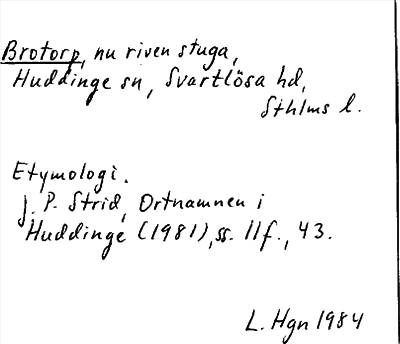 Brotorp, nu riven stuga,
Huddinge sn, Svartlösa hd,
Sthlms l.
Etymologi.
J. P. Strid, Ortnamnen i
Huddinge (1981), ss. 11f., 43.
L. Hgn 1984